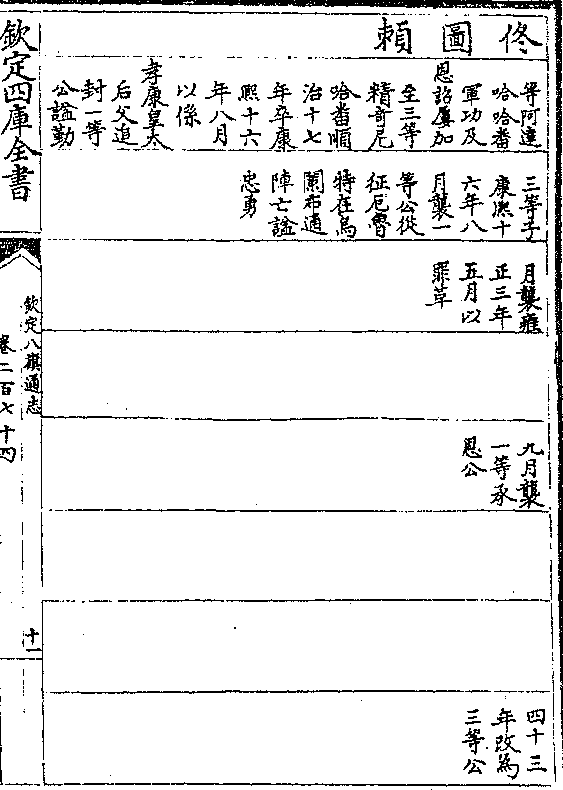 佟圖賴
等阿達
哈哈番
軍功及
恩詔屢加
至三等
精奇尼
哈番順
治十七
年卒康
熙十六
年八月
以係
孝康皇太
后父追
封一等
公諡勤
三等子
康熙十
六年八
月襲一
等公從
征厄魯
特在烏
蘭布通
陣亡諡
忠勇
月襲雍
正三年
五月以
罪革
九月襲
一等承
恩公
四十三
年改為
三等公
欽定四庫全書
欽定八旗通志
卷二百七十四
十一